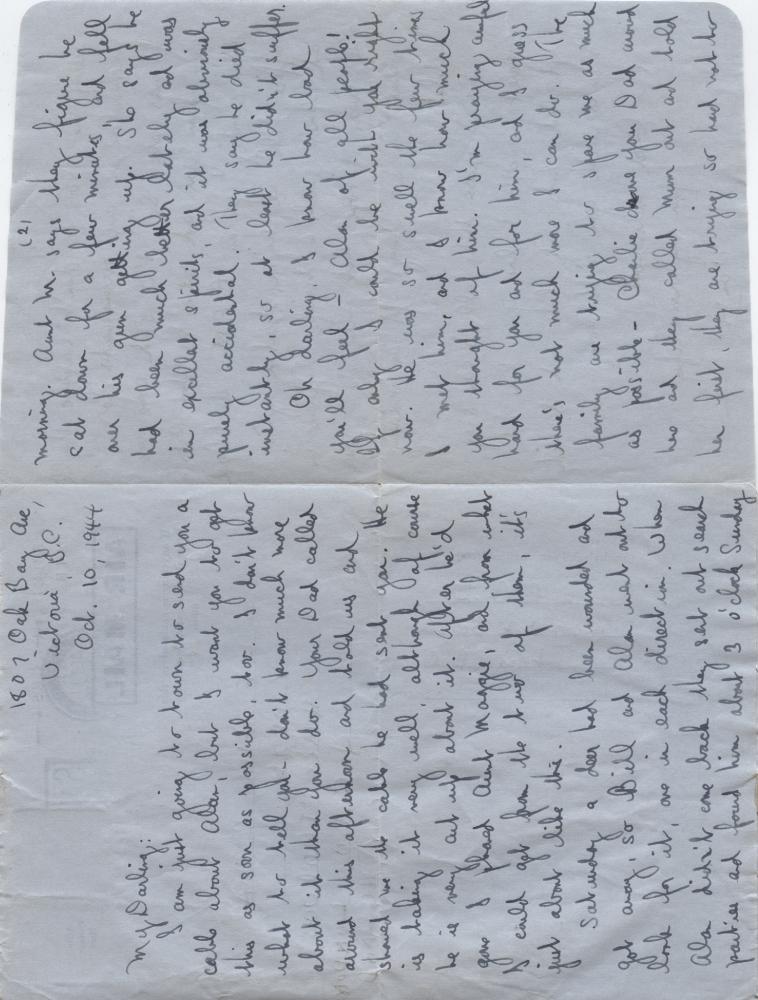 1807 Oak Bay Ave,
Victoria, B.C.
Oct. 10, 1944
My Darling:
I am just going to town to send you a
cable about Alan, but I want you to get
this as soon as possible, too. I don't know
what to tell you - don't know much more
about it than you do. Your Dad called
around this afternoon and told us and
showed me the cable he had sent you. He
is taking it very well, although of course
he is very cut up about it. After he'd
gone I phoned Aunt Maggie, and from what
I could get from the two of them, it's
just about like this.
Saturday a deer had been wounded and
got away, so Bill and Alan went out to
look for it, one in each direction. When
Alan didn't come back they sent out search
parties and found him about 3 o'clock Sunday
(2)
morning. Aunt M. says they figure he
sat down for a few minutes and fell
over his gun getting up. She says he
had been much better lately and was
in excellent spirits, and it was obviously
purely accidental. They say he died
instantly, so at least he didn't suffer.
Oh darling, I know how bad
you'll feel - Alan of all people!
If only I could be with you right
now. He was so swell the few times
I met him, and I know how much
you thought of him. I'm praying awful
hard for you and for him, and I guess
there's not much more I can do. The
family are trying to spare me as much
as possible - Charlie drove your Dad around
here and they called Mum out and told
her first, they are trying so hard not to